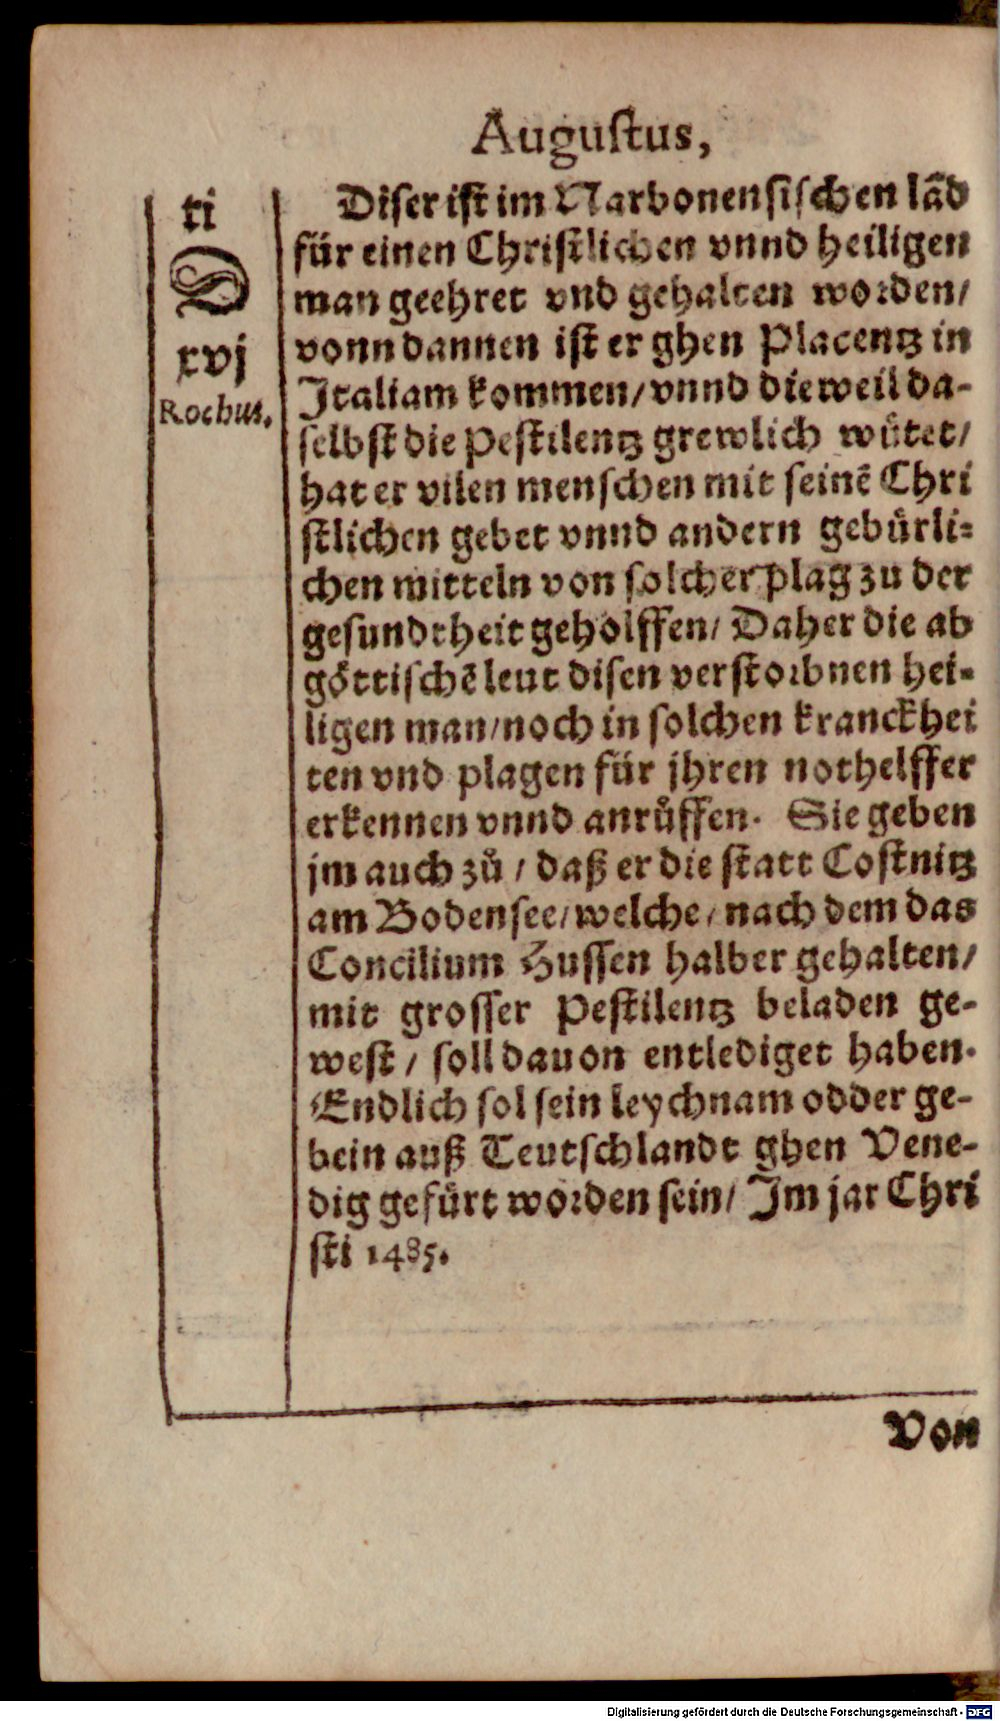 Augustus,
ti
D
xvj
Rochus.
Diser ist im Narbonensischen lãd
für einen Christlichen vnnd heiligen
man geehret vnd gehalten worden/
vonn dannen ist er ghen Placentz in
Italiam kommen/ vnnd dieweil da-
selbst die Pestilentz grewlich wütet/
hat er vilen menschen mit seinẽ Chri
stlichen gebet vnnd andern gebürli-
chen mitteln von solcher plag zu der
gesundtheit geholffen/ Daher die ab
göttischẽ leut disen verstorbnen hei-
ligen man/ noch in solchen kranckhei
ten vnd plagen für jhren nothelffer
erkennen vnnd anrůffen. Sie geben
jm auch zů / daß er die statt Costnitz
am Bodensee/ welche/ nach dem das
Concilium Hussen halber gehalten/
mit grosser Pestilentz beladen ge-
west / soll dauon entlediget haben.
Endlich sol sein leychnam odder ge-
bein auß Teutschlandt ghen Vene-
dig gefürt worden sein/ Im jar Chri
sti 1485.
Von
Digitalisierung gefördert durch die Deutsche Forschungsgemeinschaft - DFG